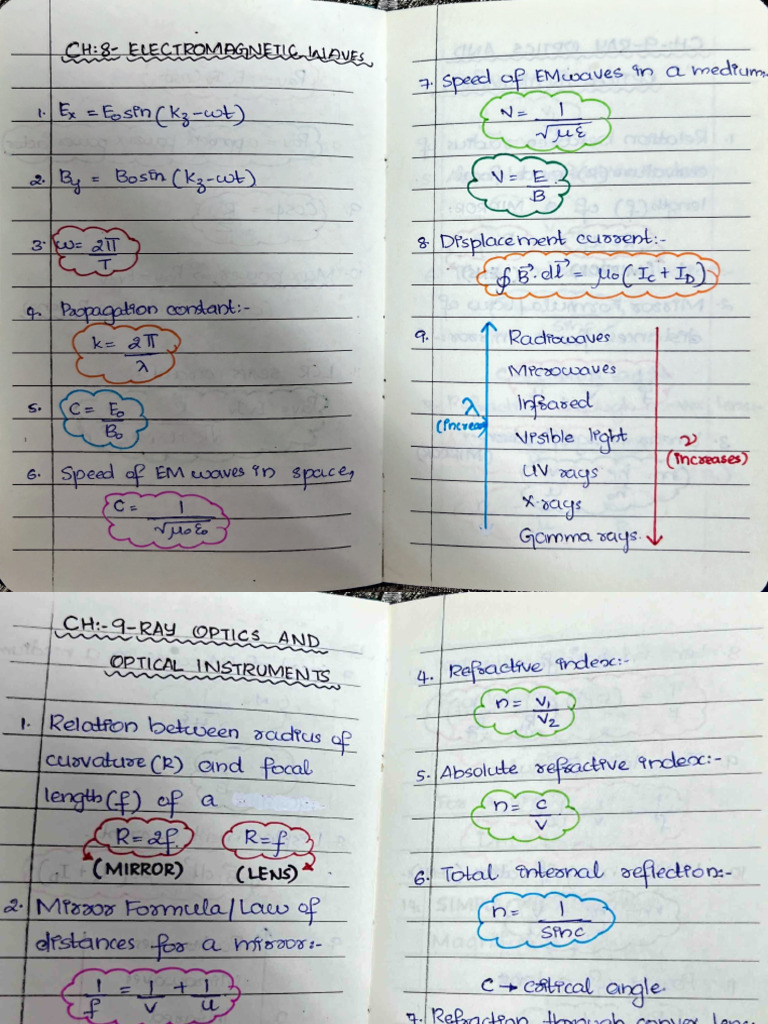 CH:8- ELECTROMAGNETIC WAVES
1. Ex = E0 sin (kz-ωt)
2. By = B0 sin (kz-ωt)
3. ω = 2π/T
4. Propagation constant:-
k = 2π/λ
5. C = E0/B0
6. Speed of EM waves in space,
C = 1/√μ0ε0
7. Speed of EM waves in a medium:-
V = 1/√με
V = E/B
8. Displacement current:-
∮B⃗.dl⃗ = μ0 (Ic + ID)
9. Radiowaves
Microwaves
Infrared
Visible light
UV rays
X-rays
Gamma rays.
λ
(increases)
ν
(increases)
CH:-9-RAY OPTICS AND
OPTICAL INSTRUMENTS
1. Relation between radius of
curvature (R) and focal
length (f) of a
R = 2f R = f
(MIRROR) (LENS)
2. Mirror Formula/Law of
distances for a mirror:-
1/f = 1/v + 1/u
4. Refractive index:-
n = v1/v2
5. Absolute refractive index:-
n = c/v
6. Total internal reflection:-
n = 1/sinc
C → critical angle
7. Refraction through convex lens